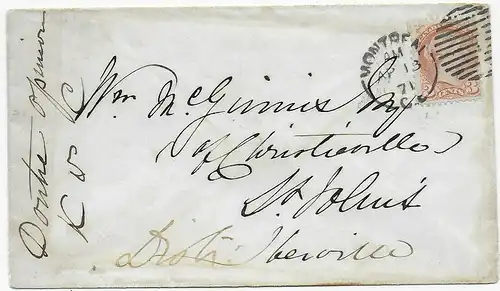 MONTREAL
AM
AP 13
71
C.E.
CENTS
Wm McGinnis Esq
of Christieville
St Johns
Distr: Iberville
Doutre opinion